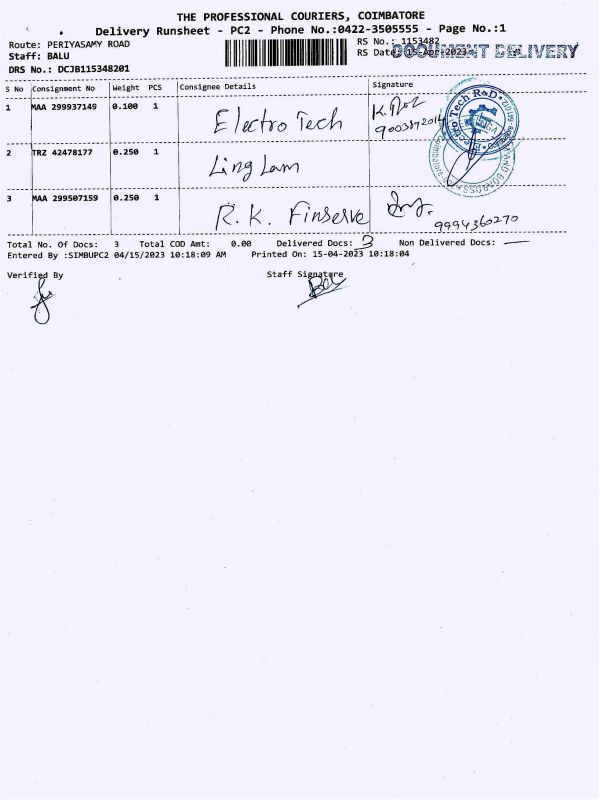 THE PROFESSIONAL COURIERS, COIMBATORE
Delivery Runsheet - PC2 - Phone No.:0422-3505555 - Page No.:1
Route: PERIYASAMY ROAD
RS No.: 1153482
Staff: BALU
RS Date: 15-Apr-2023
DOCUMENT DELIVERY
DRS No.: DCJB115348201
S No Consignment No Weight PCS Consignee Details Signature
1 MAA 299937149 0.100 1 Electro Tech
9003872014
2 TRZ 42478177 0.250 1 Ling Lam
3 MAA 299507159 0.250 1 R.K. Finserve
9994360270
Total No. Of Docs: 3 Total COD Amt: 0.00 Delivered Docs: 3 Non Delivered Docs: —
Entered By :SIMBUPC2 04/15/2023 10:18:09 AM Printed On: 15-04-2023 10:18:04
Verified By Staff Signature